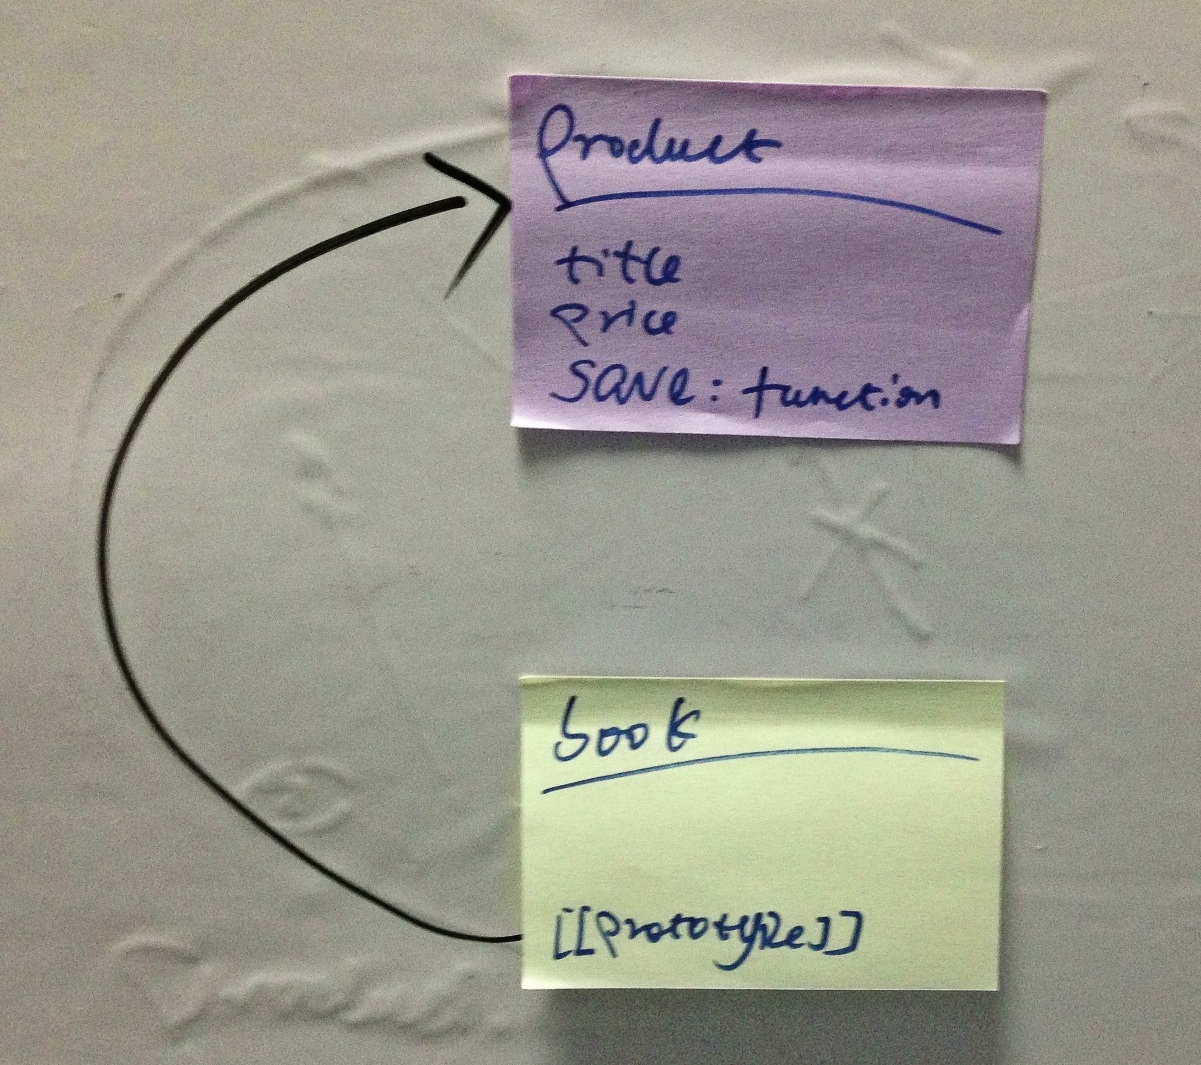 Product
title
price
save: function
book
[[prototype]]